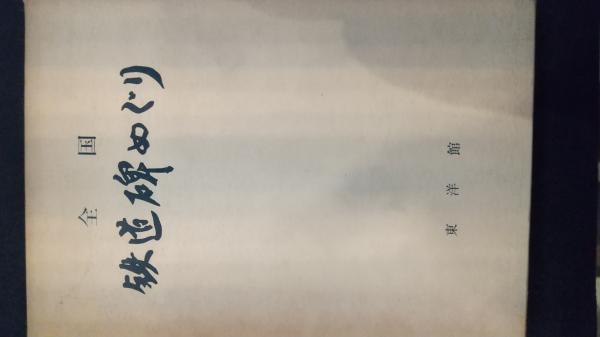 全国
鉄道碑めぐり
東洋館